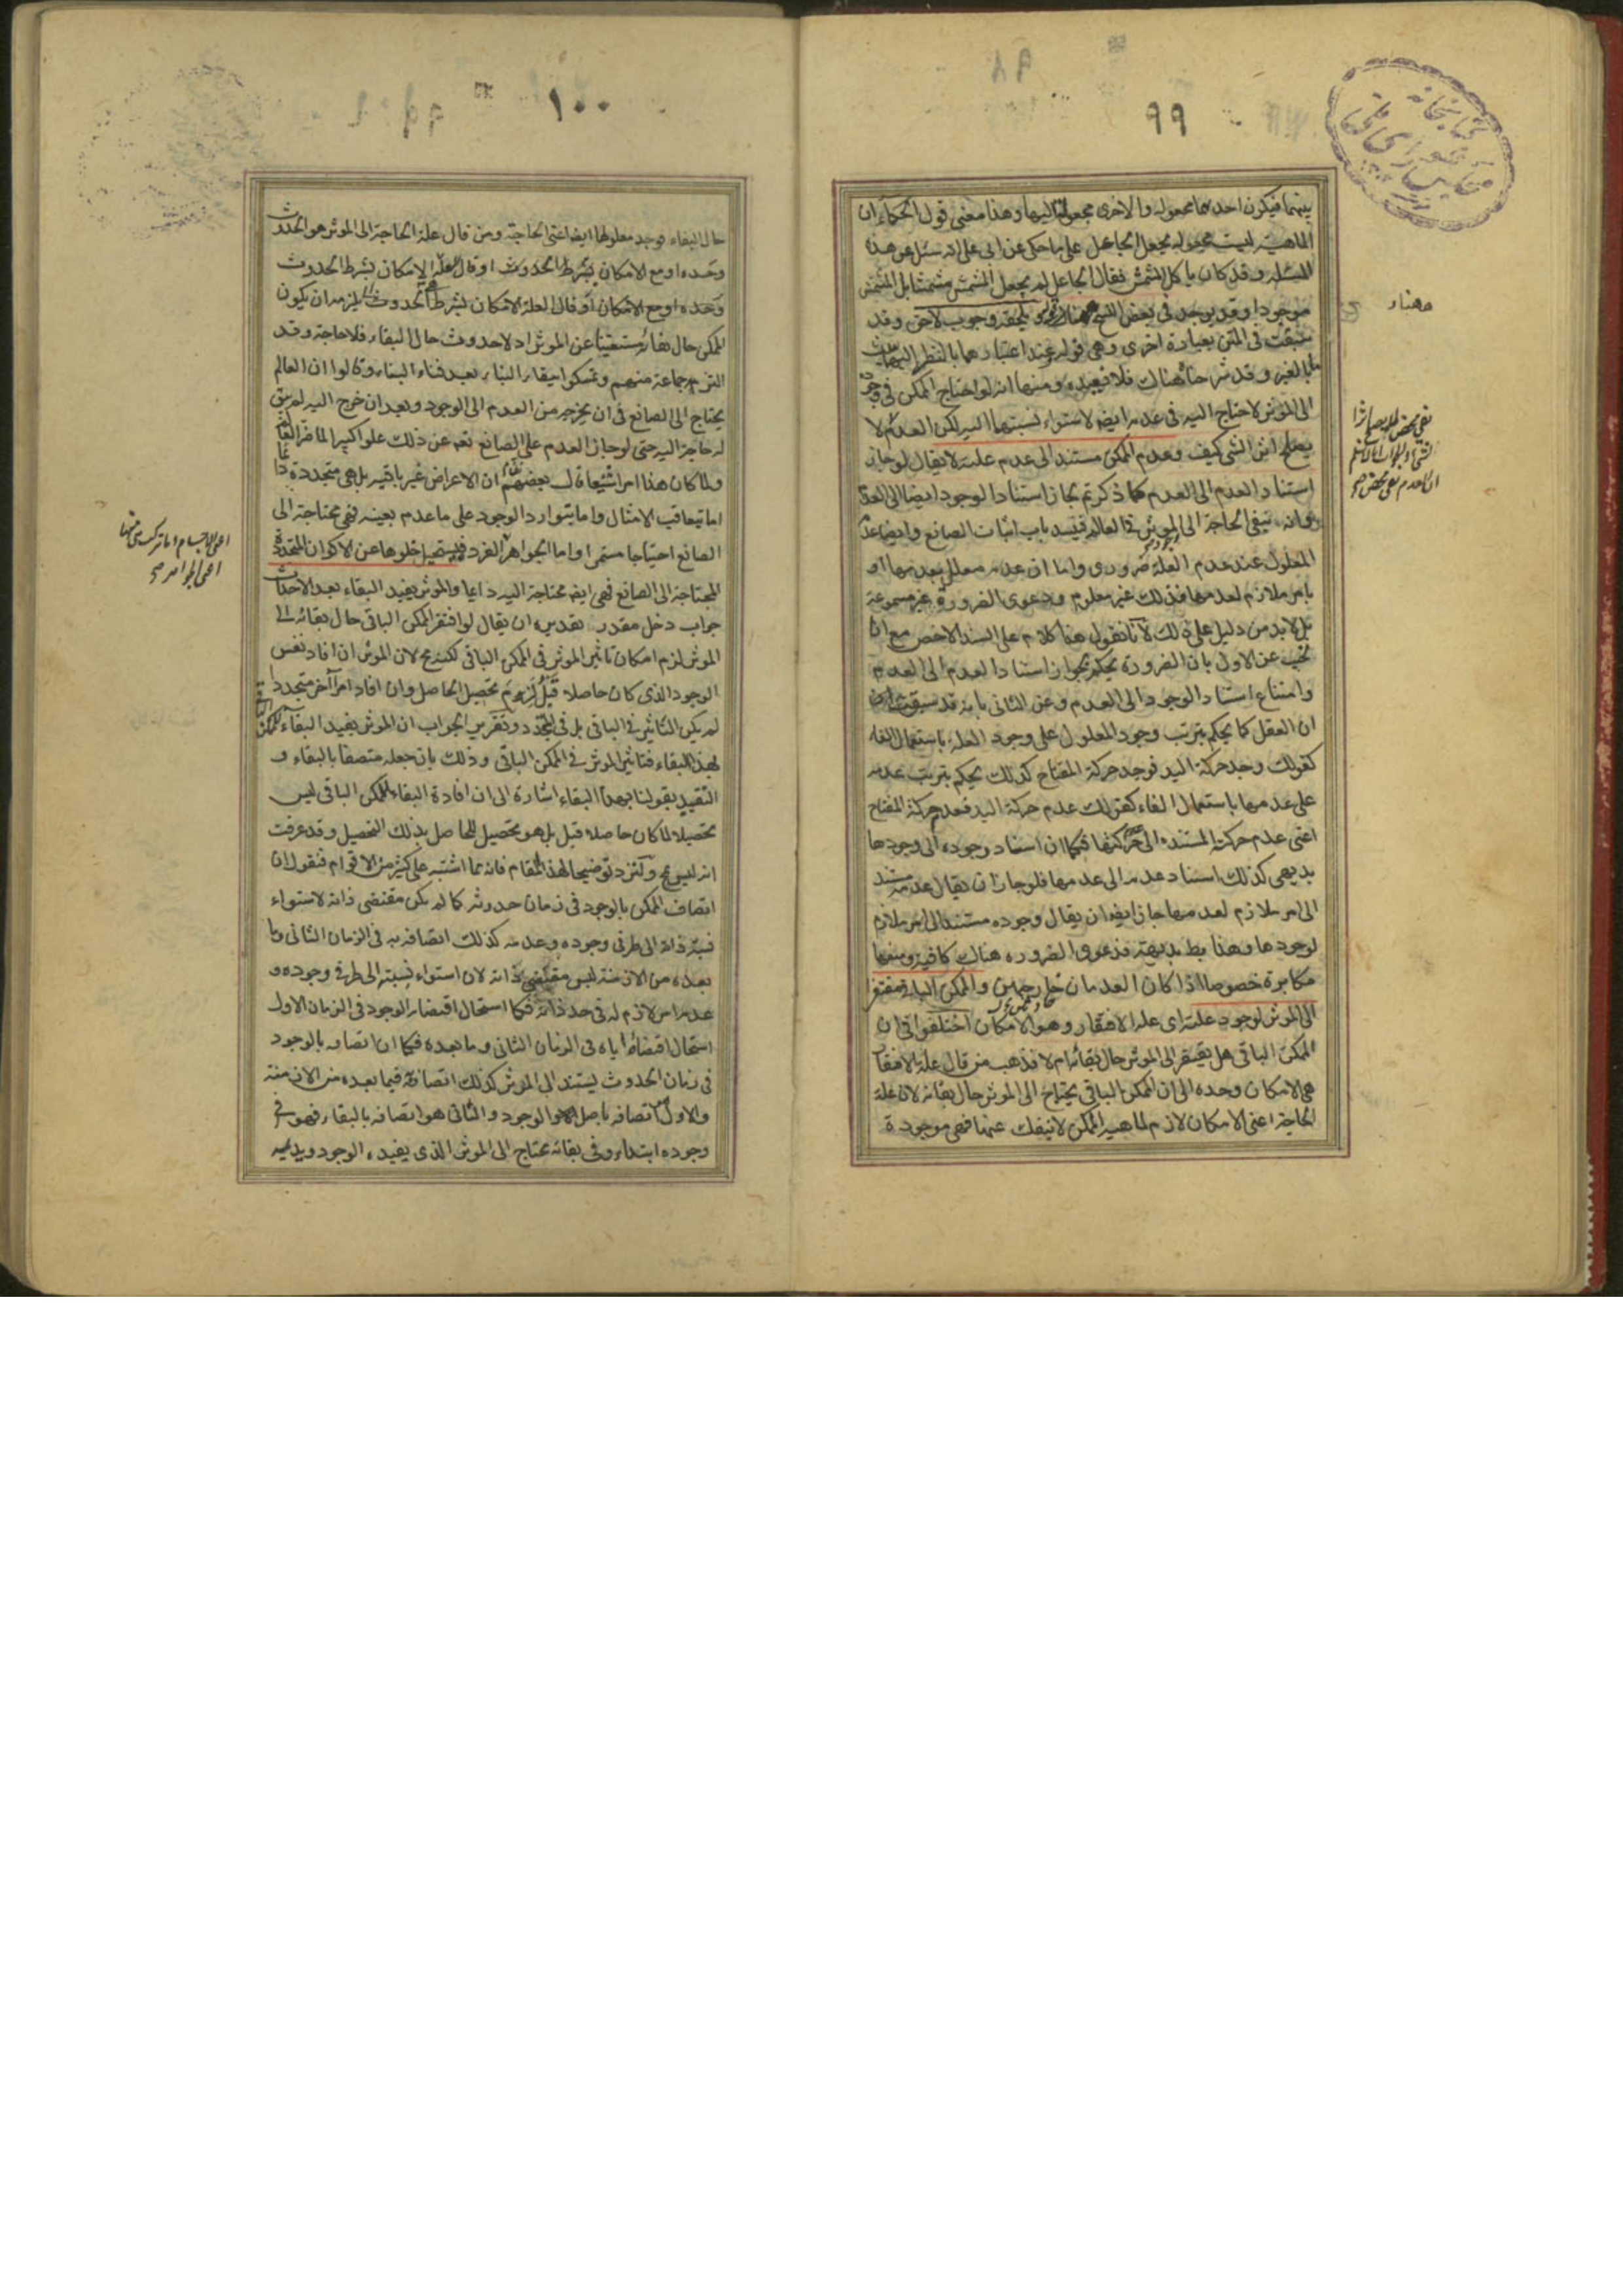 ٩٩
بينهما فيكون احدهما مجعولة والاخرى مجعولا اليها وهذا معنى قول الحكماء ان
الماهية ليست مجعولة بجعل الجاعل على ما حكى عن ابى على انه سئل عن هذه
المسئلة وقد كان ياكل المشمش فقال الجاعل لم يجعل المشمش مشمشا بل المشمش
موجودا وقد يوجد فى بعض النسخ هنا قوله يلحقه وجوب لاحق وقد
سبقت فى المتن بعبارة اخرى وهى قوله عند اعتبارهما بالنظر اليهما
بالغير وقد شرحناه هناك فلا نعيده ومنها انه لو احتاج الممكن فى وجوده
الى الموثر لاحتاج اليه فى عدمه ايض لاستواء نسبتهما اليه لكن العدم لا
يصلح اثر الشى كيف وعدم الممكن مستند الى عدم علته لا يقال لو جاز
استناد العدم الى العدم كما ذكرتم لجاز استناد الوجود ايضا الى العدم
وانه ينفى الحاجة الى الموثر فى العالم فينسد باب اثبات الصانع وايضا عدم
المعلول عند عدم العلة ضرورى واما ان عدمه معلل بعدمها او
بامر ملازم لعدمها فذلك غير معلوم ودعوى الضرورة غير مسموعة
بل لا بد من دليل على ذلك لانا نقول هذا كلام على السند الاخص مع انا
نجيب عن الاول بان الضرورة يحكم بجواز استناد العدم الى العدم
وامتناع استناد الوجود الى العدم وعن الثانى بانه قد سبقت
ان العقل كما يحكم بترتب وجود المعلول على وجود العلة باستعمال الفاء
كقولك وجد حركة اليد فوجد حركة المفتاح كذلك يحكم بترتب عدمه
على عدمها باستعمال الفاء كقولك عدم حركة اليد فعدم حركة المفتاح
اعنى عدم حركته المستندة الى حركتها فكما ان استناد وجوده الى وجودها
بديهى كذلك استناد عدمه الى عدمها فلو جاز ان يقال عدمه مستند
الى امر ملازم لعدمها جاز ايض ان يقال وجوده مستند الى امر ملازم
لوجودها وهذا بط بديهة فدعوى الضرورة هناك كافية ومنعها
مكابرة خصوصا اذا كان العدمان خارجيين والممكن الباقى مفتقر
الى الموثر لوجود علته اى علة الافتقار وهو الامكان اختلفوا فى ان
الممكن الباقى هل يفتقر الى الموثر حال بقائه ام لا فذهب من قال علة الافتقار
هى الامكان وحده الى ان الممكن الباقى يحتاج الى الموثر حال بقائه لان علة
الحاجة اعنى الامكان لازم لماهية الممكن لا ينفك عنها فهى موجودة
ههنا
نفى محض فلا يصلح اثرا
١٠٠
حال البقاء فوجد معلولها ايضا اعنى الحاجة ومن قال علة الحاجة الى الموثر هو الحدوث
وحده او مع الامكان بشرط الحدوث او قال العلة الامكان بشرط الحدوث
وحده او مع الامكان او قال العلة الامكان بشرط الحدوث يلزمه ان يكون
الممكن حال بقائه مستغنيا عن الموثر اذ لا حدوث حال البقاء فلا حاجة وقد
التزمه جماعة منهم وتمسكوا ببقاء البناء بعد فناء البناء وقالوا ان العالم
يحتاج الى الصانع فى ان يخرجه من العدم الى الوجود وبعد ان خرج اليه لم يبق
له حاجة اليه حتى لو جاز العدم على الصانع تعم عن ذلك علوا كبيرا لما ضر العالم
ولما كان هذا امرا شنيعا قال بعضهم ان الاعراض غير باقية بل هى متجددة دائما
اما بتعاقب الامثال واما بتوارد الوجود على ما عدم بعينه فهى محتاجة الى
الصانع احتياجا مستمرا واما الجواهر الفرد فيستحيل خلوها عن الاكوان المتجددة
المحتاجة الى الصانع فهى ايض محتاجة اليه دائما والموثر يفيد البقاء بعد الاحداث
جواب دخل مقدر تقديره ان يقال لو افتقر الممكن الباقى حال بقائه الى
الموثر لزم امكان تاثير الموثر فى الممكن الباقى لكنه مح لان الموثر ان افاد نفس
الوجود الذى كان حاصلا قبل لزم تحصيل الحاصل وان افاد امرا آخر متجددا
لم يكن التاثير فى الباقى بل فى المتجدد وتقرير الجواب ان الموثر يفيد البقاء للممكن
بهذا البقاء فتاثير الموثر فى الممكن الباقى وذلك بان جعله متصفا بالبقاء و
التقييد بقولنا بهذا البقاء اشارة الى ان افادة البقاء للممكن الباقى ليس
تحصيلا لما كان حاصلا قبل بل هو تحصيل للحاصل بذلك التحصيل وقد عرفت
انه ليس بمح ولنزد توضيحا لهذا المقام فانه مما اشتبه على كثير من الاقوام فنقول ان
اتصاف الممكن بالوجود فى زمان حدوثه كما لم يكن مقتضى ذاته لاستواء
نسبة ذاته الى طرفى وجوده وعدمه كذلك اتصافه به فى الزمان الثانى وما
بعده من الازمنة ليس مقتضى ذاته لان استواء نسبته الى طرفى وجوده و
عدمه امر لازم له فى حد ذاته فكما استحال اقتضاء الوجود فى الزمان الاول
استحال اقتضاؤه اياه فى الزمان الثانى وما بعده فكما ان اتصافه بالوجود
فى زمان الحدوث يستند الى الموثر كذلك اتصافه فيما بعده من الازمنة
والاول اتصافه باصل الوجود والثانى هو اتصافه بالبقاء فهو فى
وجوده ابتداء وفى بقائه محتاج الى الموثر الذى يفيده الوجود ويديمه